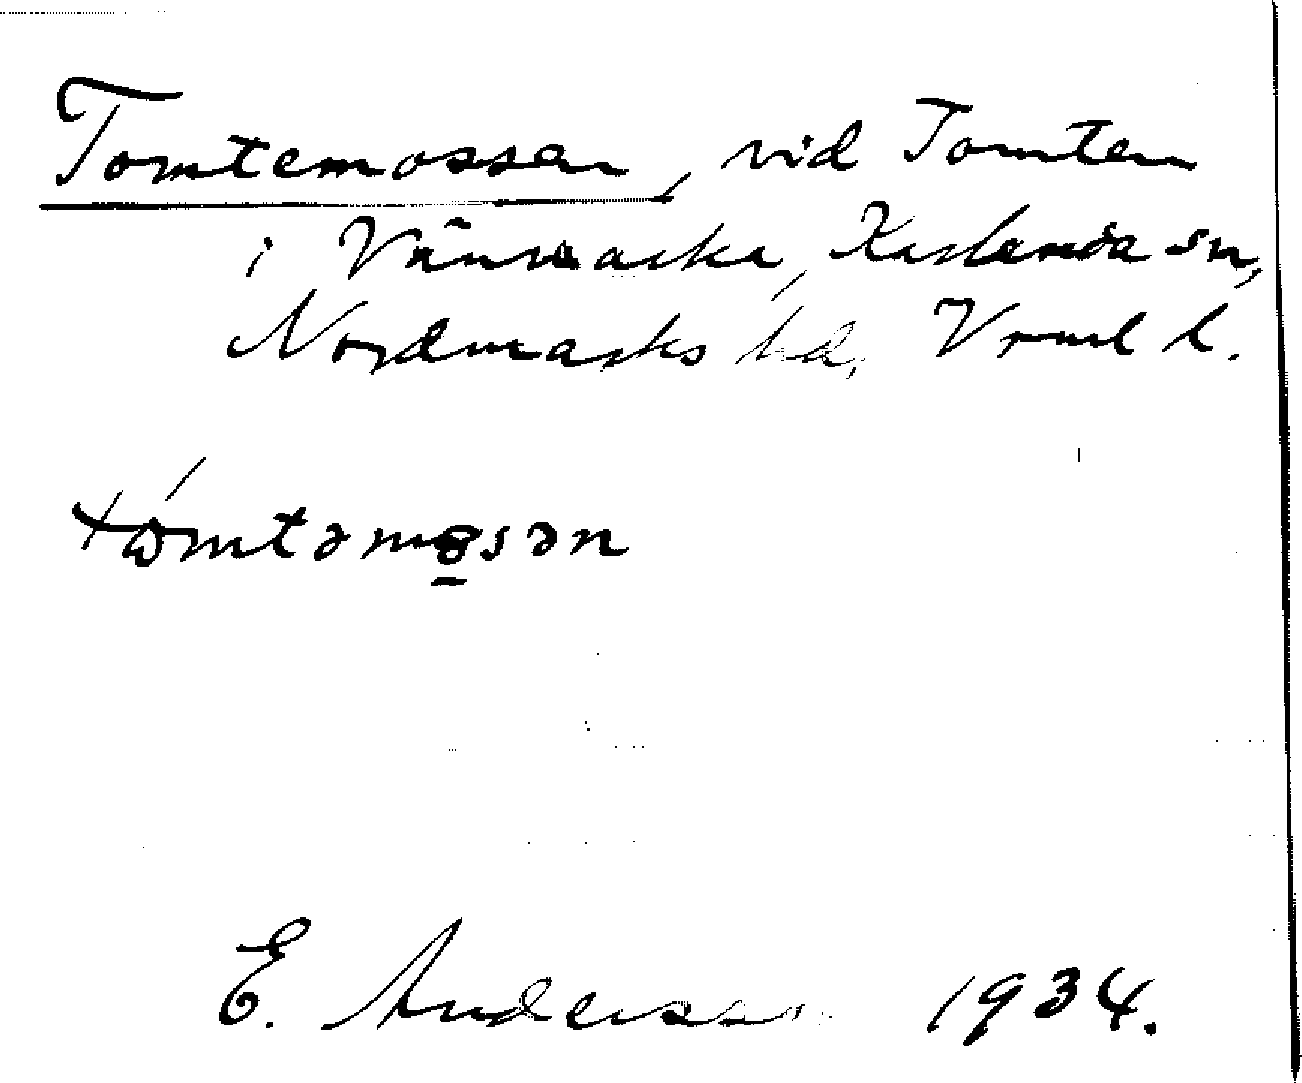 Tomtemossen, vid Tomten
i Vännacka, Karlanda sn,
Nordmarks hd, Vrml l.
tómtəmɵ̱sən
E. Andersson 1934.